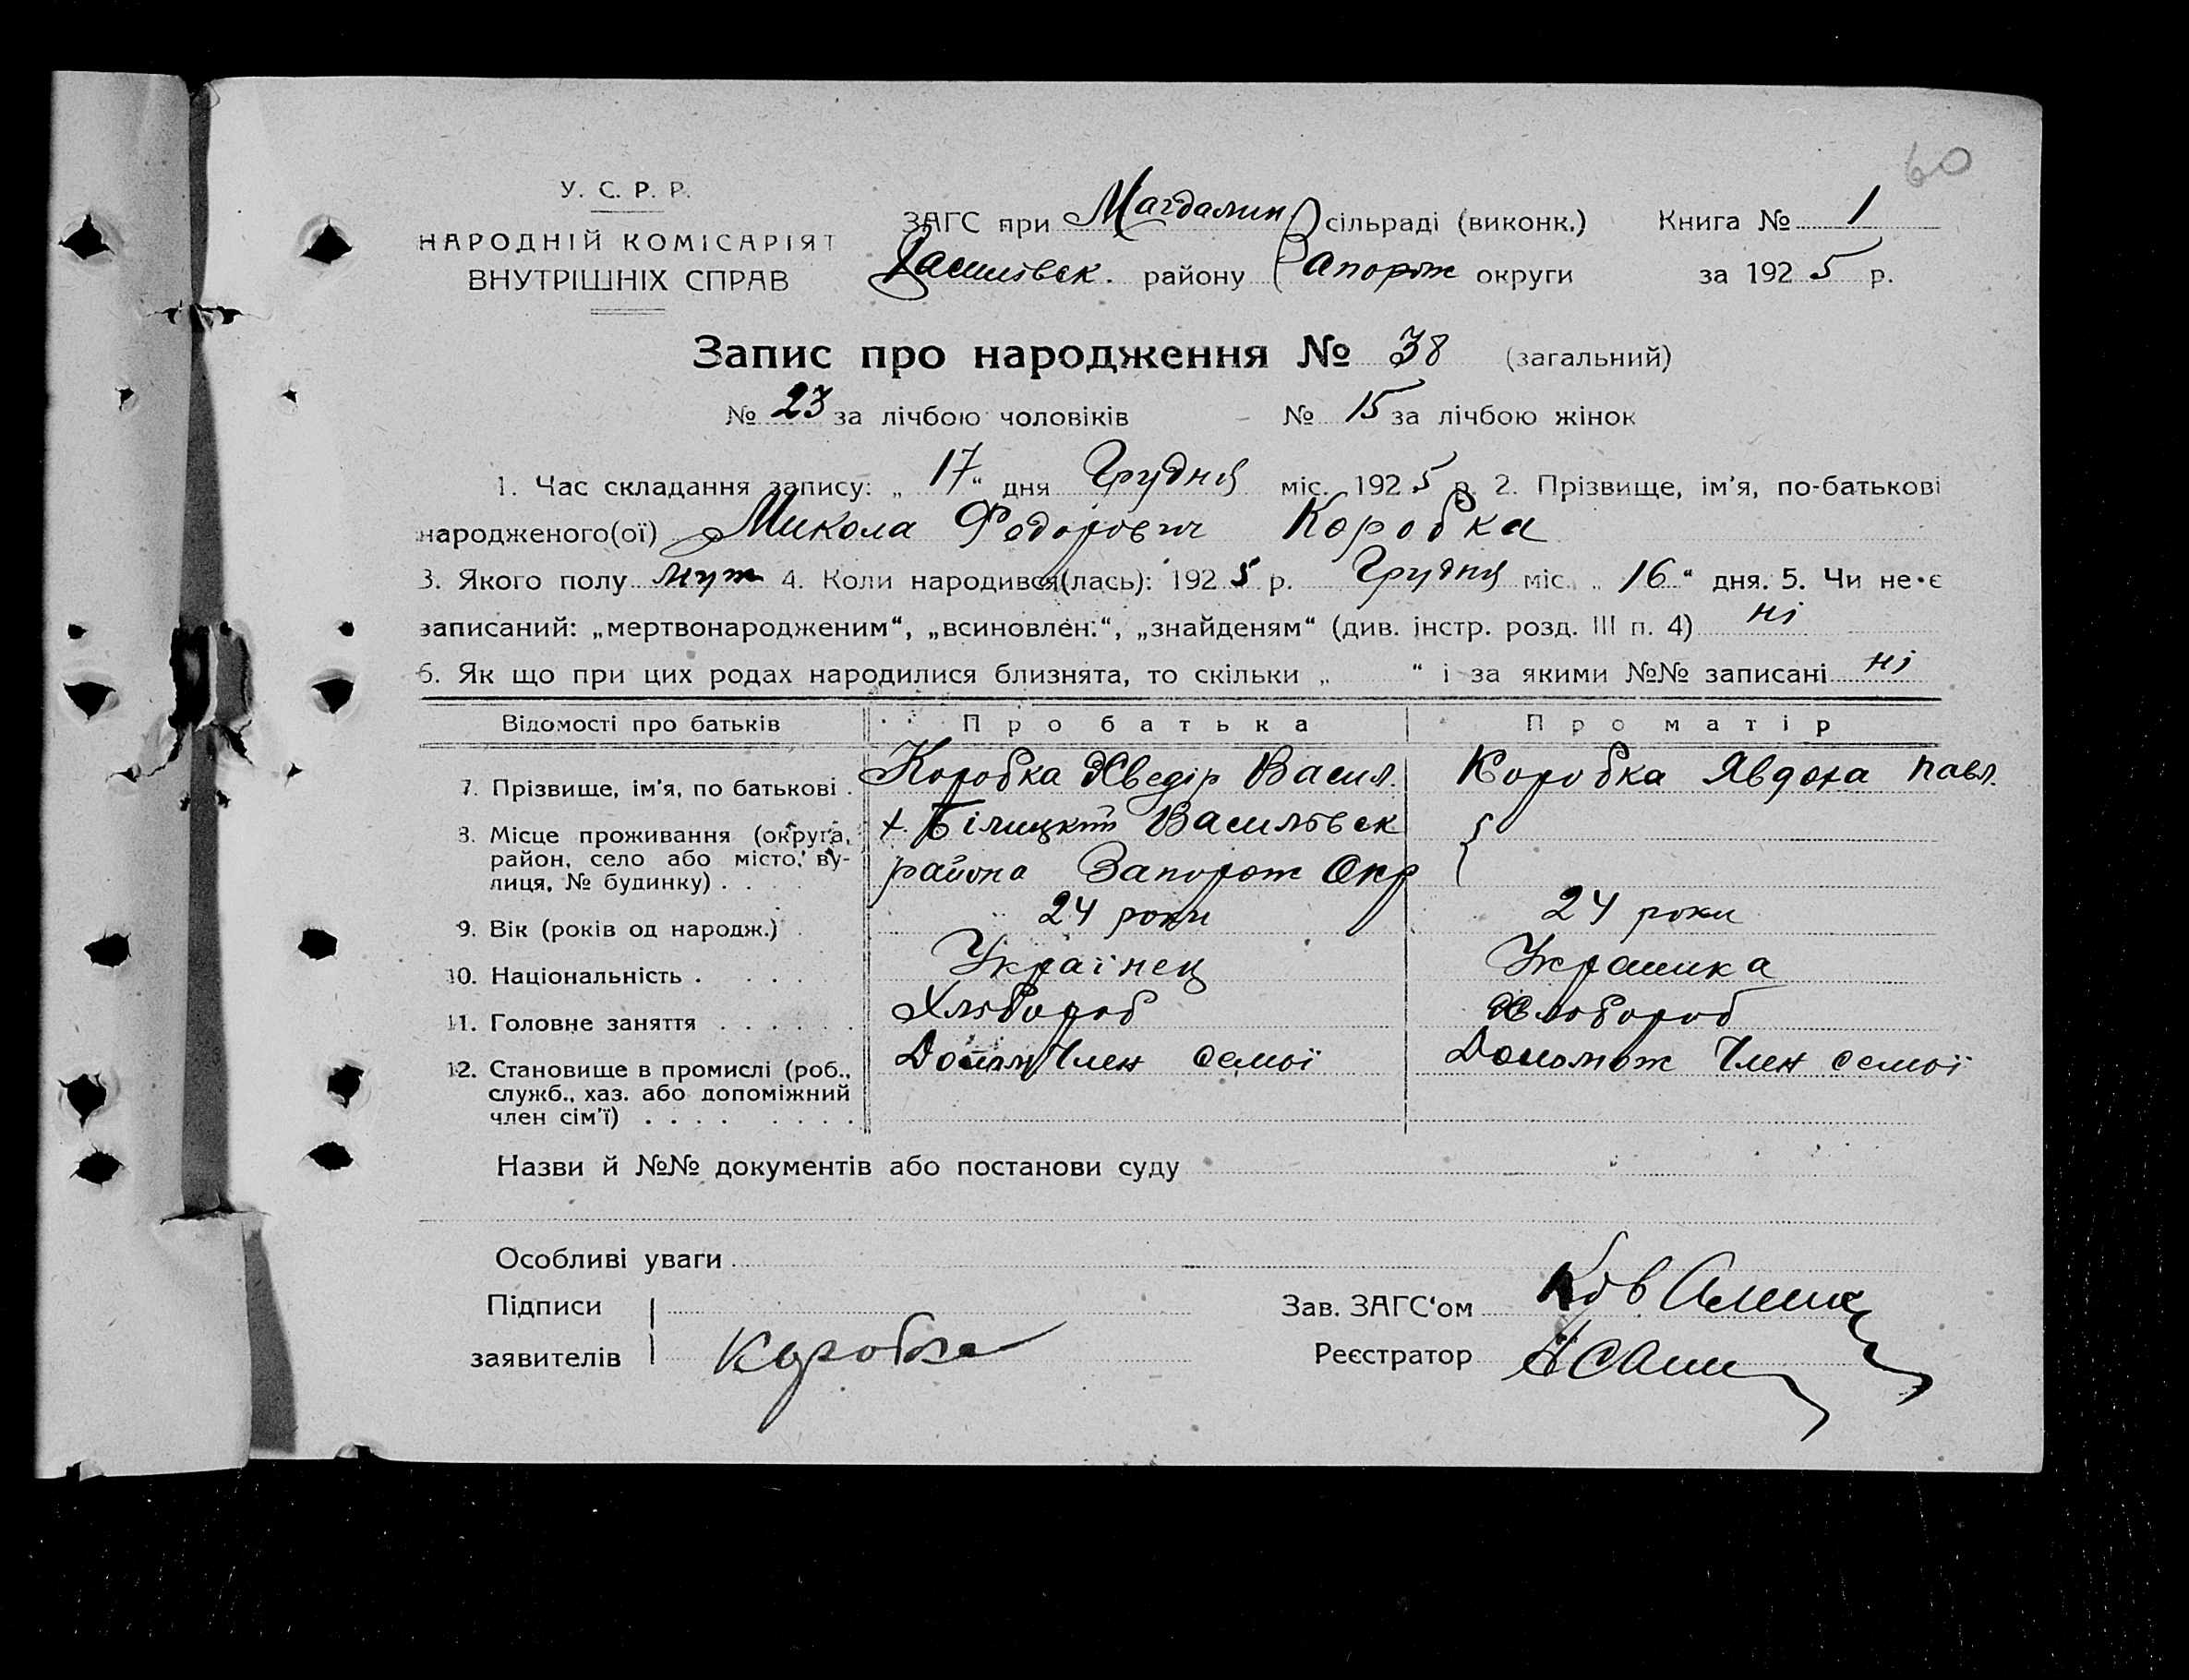 60
У. С. Р. Р.
НАРОДНІЙ КОМІСАРІЯТ
ВНУТРІШНІХ СПРАВ
ЗАГС при Магдалин сільраді (виконк.) Книга № 1
Василівск. району Запорож округи за 1925 р.
Запис про народження № 38 (загальний)
№ 23 за лічбою чоловіків № 15 за лічбою жінок
1. Час складання запису: „17“ дня Грудня міс. 1925 р. 2. Прізвище, ім'я, по-батькові
народженого(ої) Микола Федорович Коробка
3. Якого полу муж 4. Коли народився(лась): 1925 р. Грудня міс. „16“ дня. 5. Чи не є
записаний: „мертвонародженим“, „всиновлен.“, „знайденям“ (див. інстр. розд. III п. 4) ні
6. Як що при цих родах народилися близнята, то скільки „ “ і за якими №№ записані ні
Відомості про батьків Про батька Про матір
7. Прізвище, ім'я, по батькові . Коробка Хведір Васил. Коробка Явдоха Павл.
8. Місце проживання (округа, район, село або місто, вулиця, № будинку) . . х. Білицкий Василівск
района Запорож Окр
9. Вік (років од народж.) . 24 роки 24 роки
10. Національність . . . . Українец Украинка
11. Головне заняття . . . . . . Хлібороб Хлібороб
12. Становище в промислі (роб., служб., хаз. або допоміжний член сім'ї) . . . . . . . . Член семьї Допомож Член семьї
Назви й №№ документів або постанови суду
Особливі уваги
Підписи
заявителів Коробка
Зав. ЗАГС'ом
Реєстратор